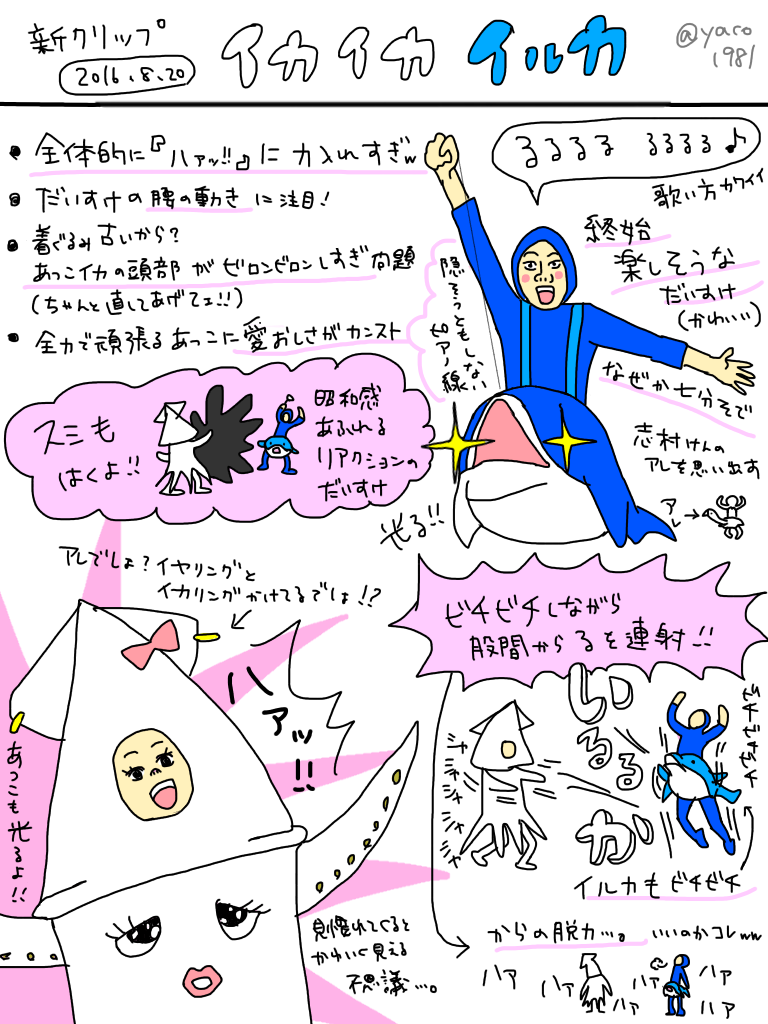 新クリップ
2016.8.20
イカイカ イルカ
@yaro
1981
• 全体的に『ハァッ!!』に力入れすぎw
• だいすけの腰の動きに注目!
• 着ぐるみ古いから?
あっこイカの頭部がビロンビロンしすぎ問題
(ちゃんと直してあげてェ!!)
• 全力で頑張るあっこに愛おしさがカンスト
るるるる るるるる♪
歌い方カワイイ
終始
楽しそうな
だいすけ
(かわいい)
隠そうともしない
ピアノ線
なぜか七分そで
志村けんの
アレを思い出す
アレ→
光る!!
スミも
はくよ!!
昭和感
あふれる
リアクションの
だいすけ
アレでしょ?イヤリングと
イカリングかけてるでしょ!?
ハァッ!!
あっこも光るよ!!
見慣れてくると
かわいく見える
不思議…。
ビチビチしながら
股間からるを連射!!
いるるか
シャシャシャシャシャ
ビチビチビチ
イルカもビチビチ
からの脱力…。 いいのかコレww
ハァ ハァ ハァ ハァ ハァ ハァ